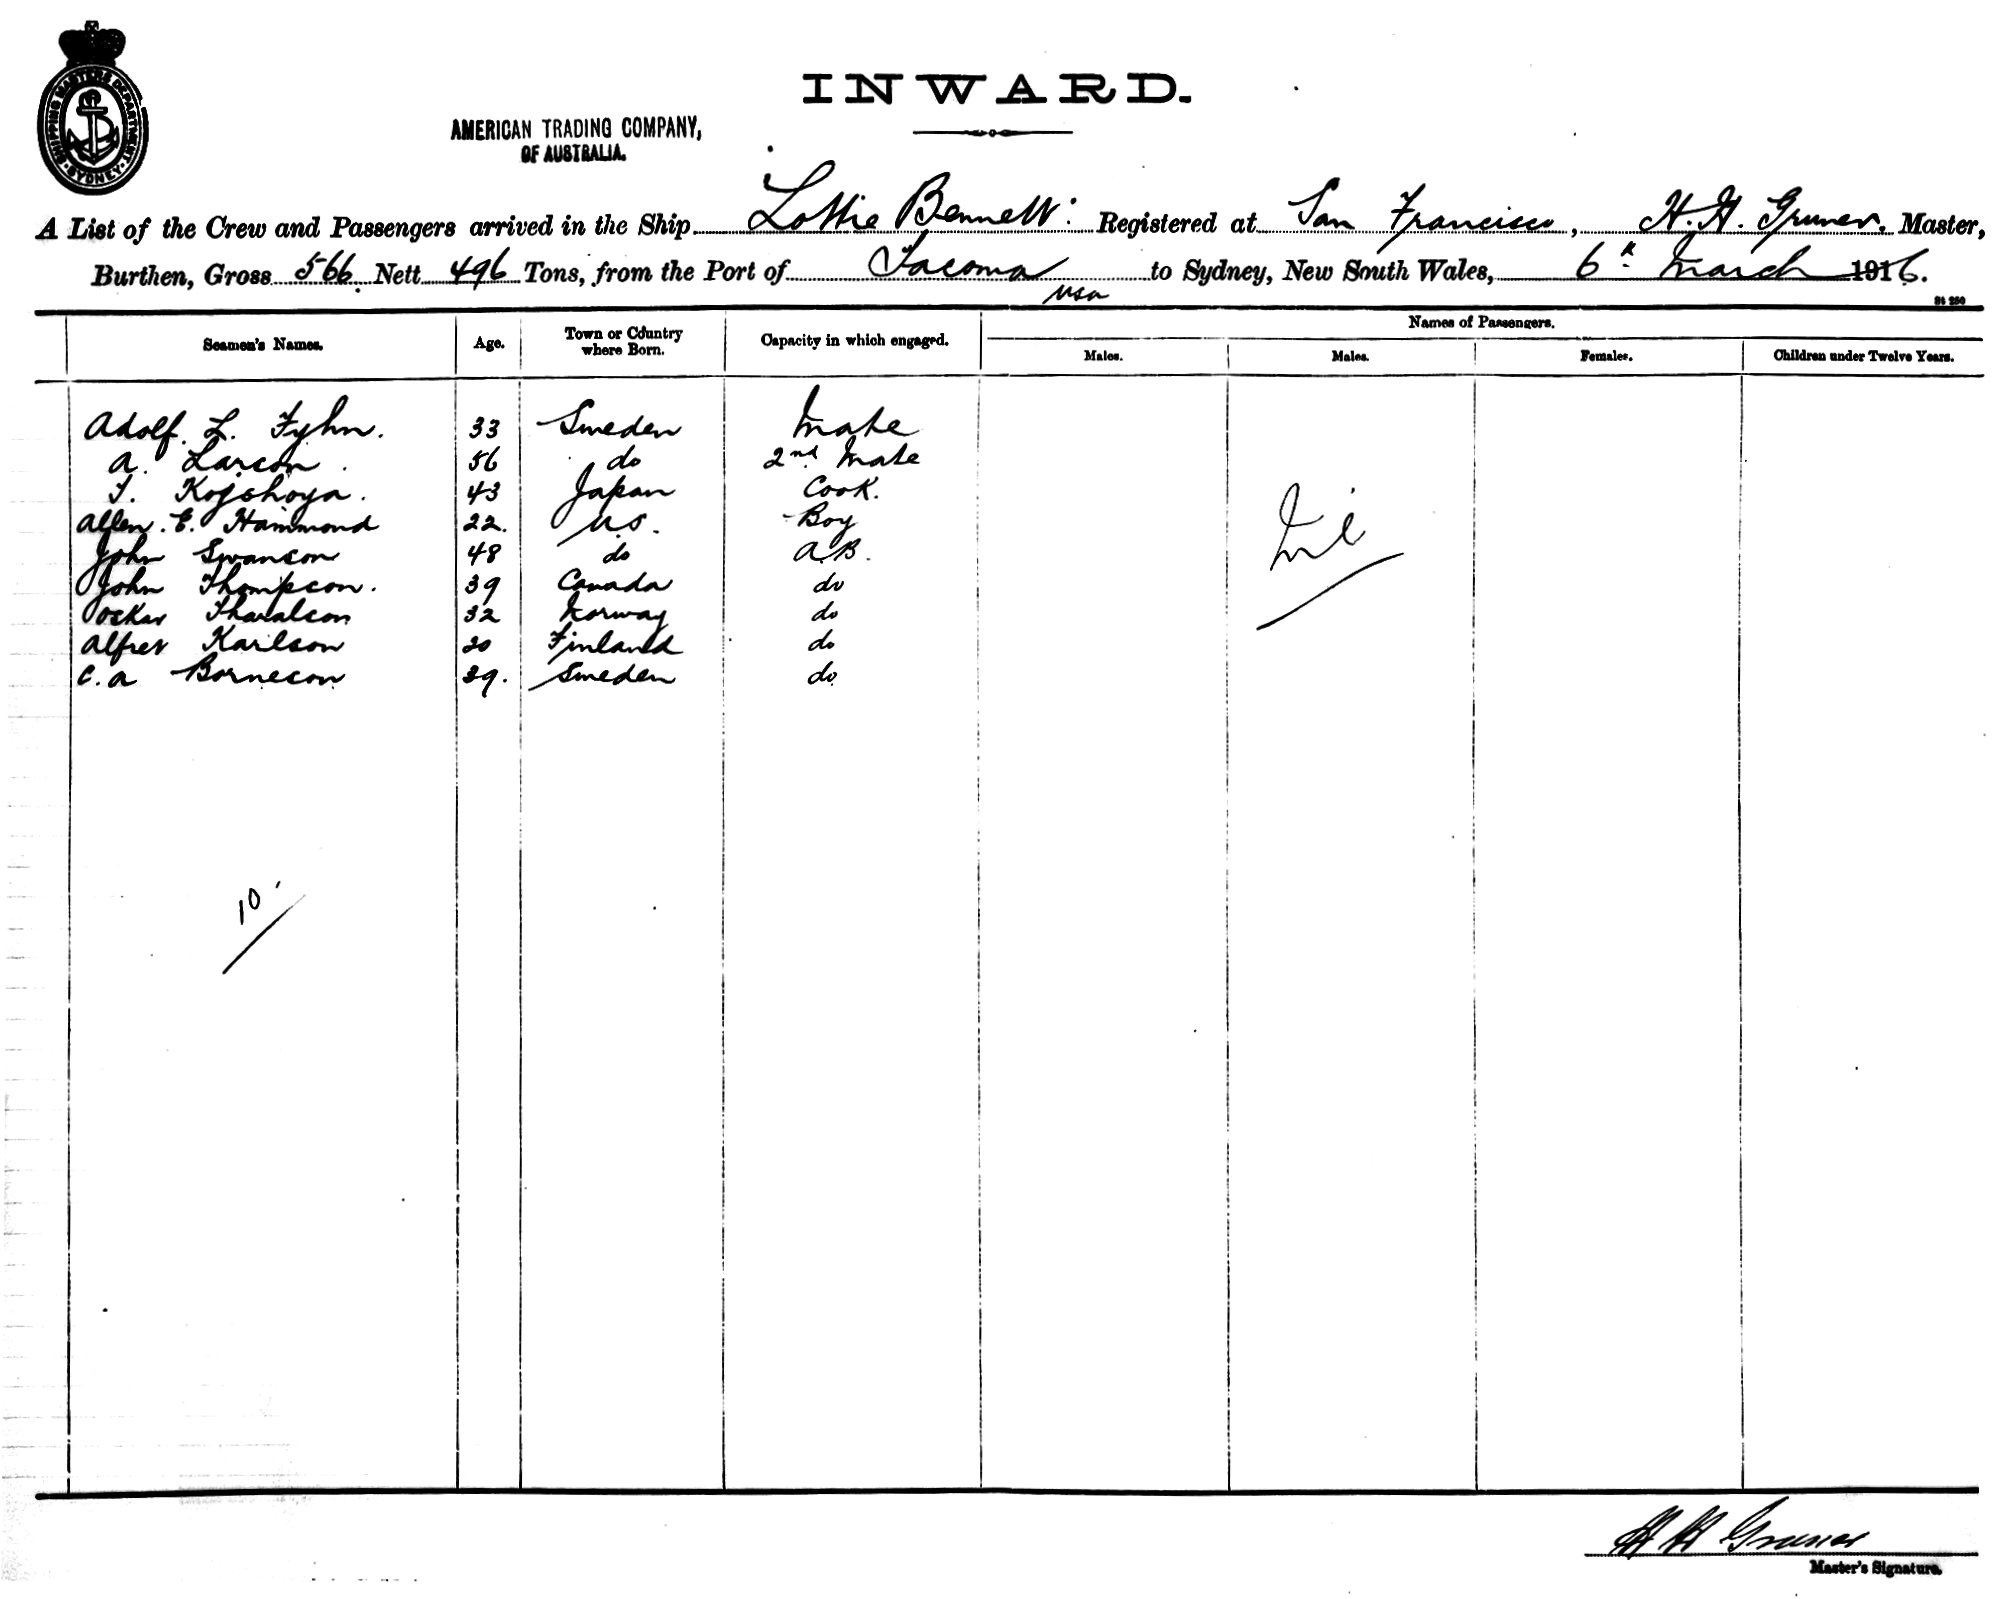 SHIPPING MASTERS DEPARTMENT
SYDNEY
INWARD.
AMERICAN TRADING COMPANY,
OF AUSTRALIA.
A List of the Crew and Passengers arrived in the Ship Lottie Bennett Registered at San Francisco, H. H. Gruner. Master,
Burthen, Gross 566 Nett 496 Tons, from the Port of Tacoma to Sydney, New South Wales, 6th March 1916.
USA
St 250
Seamen's Names. Age. Town or Country where Born. Capacity in which engaged. Names of Passengers.
Males. Males. Females. Children under Twelve Years.
Adolf. L. Fyhn. 33 Sweden Mate
A. Larson. 56 do 2nd Mate
T. Kojshoya. 43 Japan Cook.
Allen. E. Hammond 22. U.S. Boy
John Swanson 48 do A.B.
John Thompson. 39 Canada do
Oskar Tharalson 32 Norway do
Alfret Karlson 20 Finland do
C. A Borneson 39. Sweden do
Nil
10
H H Gruner
Master's Signature.